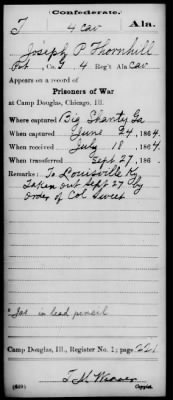 Confederate.
T 4 Cav Ala.
Joseph P Thornhill
Pvt, Co. I, 4 Reg't Ala Cav
Appears on a record of
Prisoners of War
at Camp Douglas, Chicago, Ill.
Where captured Big Shanty Ga
When captured June 24, 1864.
When received July 18, 1864.
When transferred Sept 27, 186 .
Remarks: To Louisville Ky
Taken out Sept 27 by
order of Col Sweet
in lead pencil
Camp Douglas, Ill., Register No. 1; page 221
(639)
Copyist.